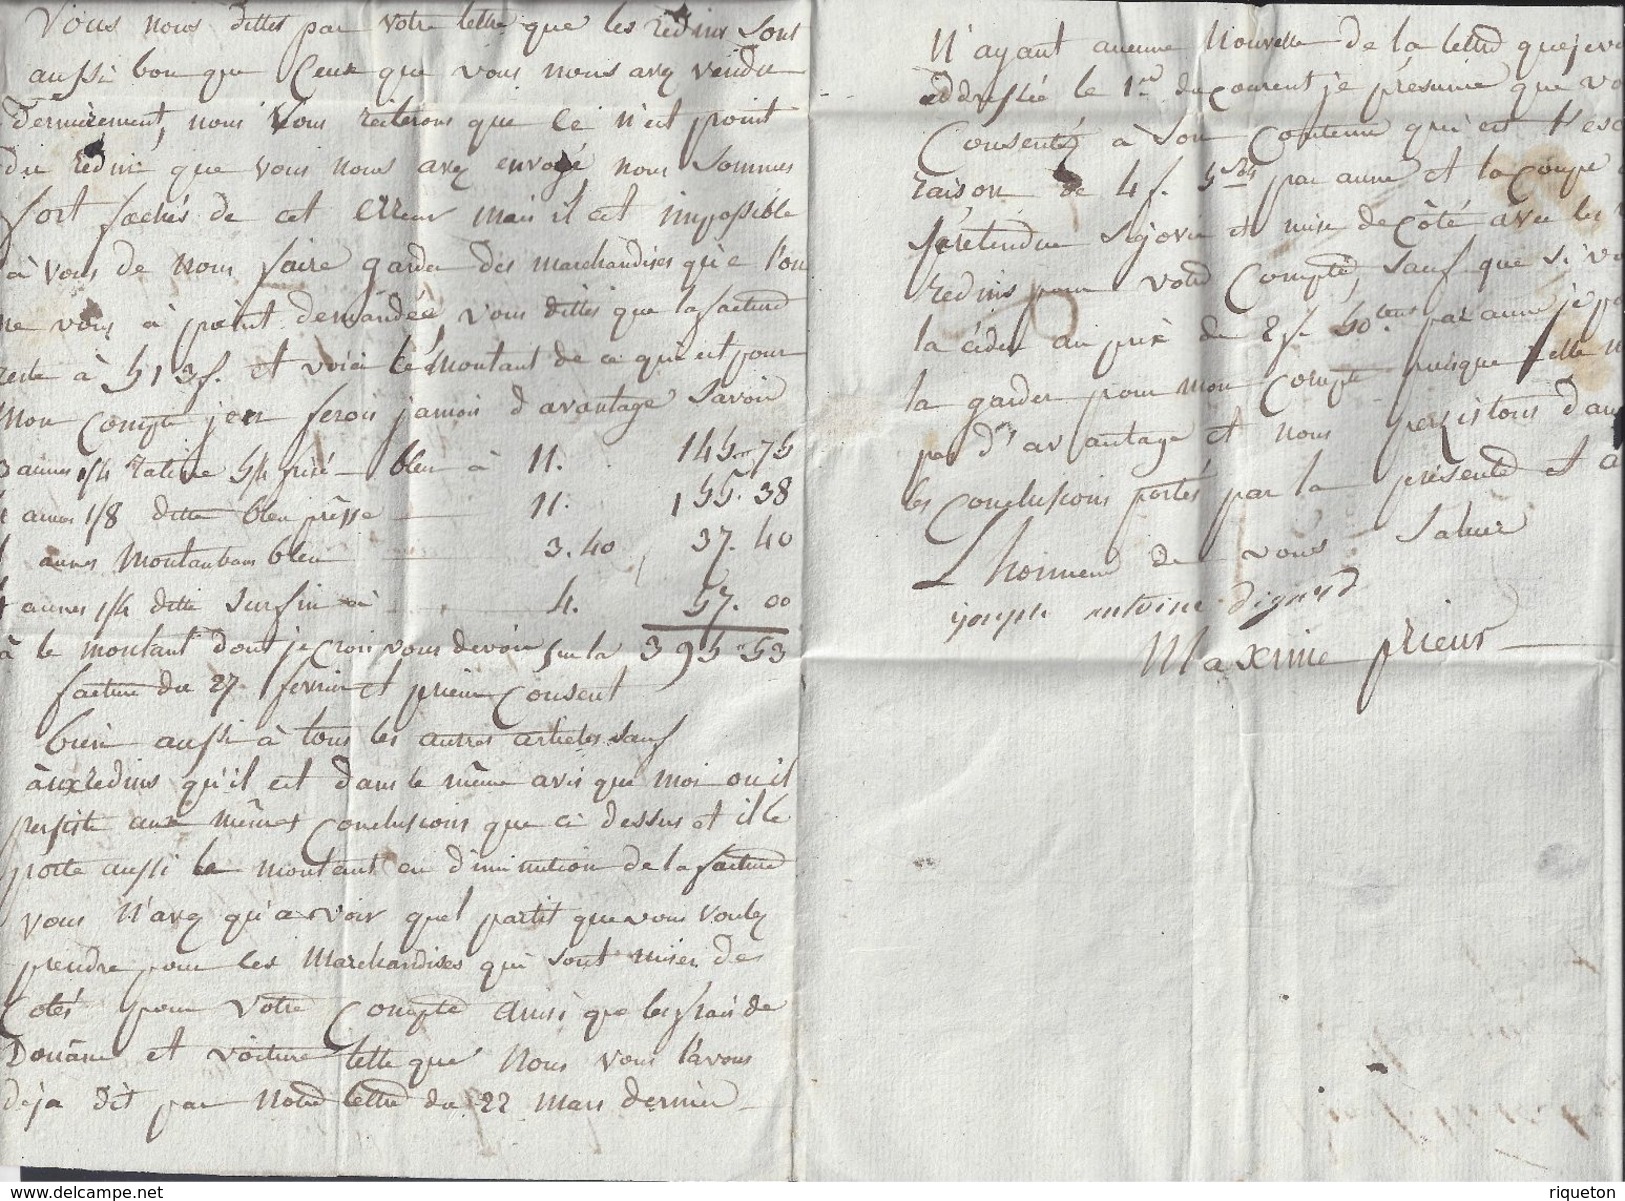 Vous nous dittes par votre lettre que les redins sont
aussi bon que Ceux que vous nous avez vendu
dernièrement, nous vous réiterons que ce n'est point
du redin que vous nous avez envoyé nous sommes
fort fachés de cet Erreur mais il est impossible
à vous de nous faire garder des marchandises què l'on
ne vous à point demandée, vous dittes que la facture
reste à 513 f. et voici le montant de ce qui est pour
mon Compte je n ferois jamais d'avantage Savoir
3 aunes 1/4 ratine 5/4 frisé bleu à 11. 145-75
aunes 1/8 ditte bleu prusse 11. 155.38
aunes Montauban bleu 3.40 37.40
4 aunes 1/4 ditte Surfin à 4. 57.00
à le montant dont je crois vous devoir sur la 395-53
facture du 27 fevrier et prieur Consent
bien aussi à tous les autres articles sauf
àux redins qu'il est dans le même avis que moi ou il
persiste aux mêmes Conclusions que ci dessus et il le
porte aussi le montant en diminution de la facture
vous n'avez qu'a voir quel partit que vous voulez
prendre pour les Marchandises qui sont mises de
Cotés pour votre Compte ainsi que les frais de
Douâne et voiture telle que nous vous l'avons
deja dit par notre lettre du 22 mars dernier
N'ayant aucune Nouvelle de la lettre que je vo
addressée le 1er du courent je présume que vo
Consentez à Son Contenu qui est l'esc
raison de 4 f. 5 par aune et la Coupe
prétendue Sejovie et mise de côté avec les
redins pour votre Compte, sauf que si vo
la céder au prix de 2 f. 50 par aune je po
la garder pour mon Compte puisque elle n
pas d'avantage et nous persistons dans
les Conclusions portés par la présente et a
L'honneur de vous Saluer
joseph antoine
Maxime prieur
www.delcampe.net
riqueton